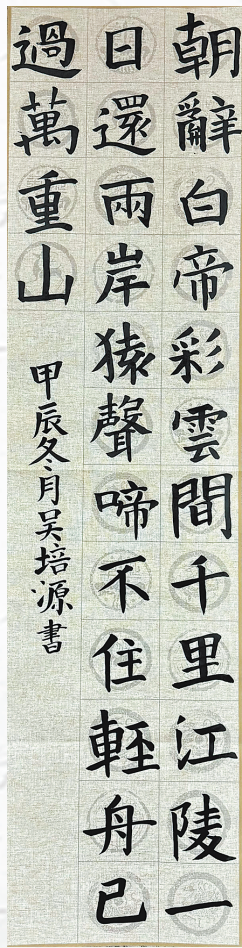 朝辭白帝彩雲間千里江陵一
日還兩岸猿聲啼不住輕舟已
過萬重山
甲辰冬月吴培源書